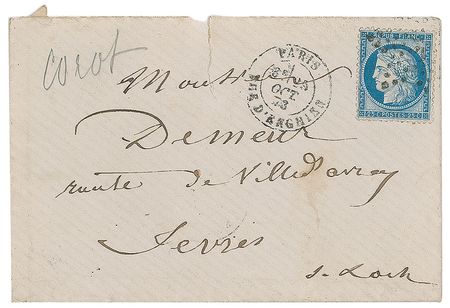 corot
Monsieur
Demeur
route de Ville d'avray
Sevres
PARIS
OCT
73
R. D'ENGHIEN
REPUB. FRANC.
25 C POSTES 25 C